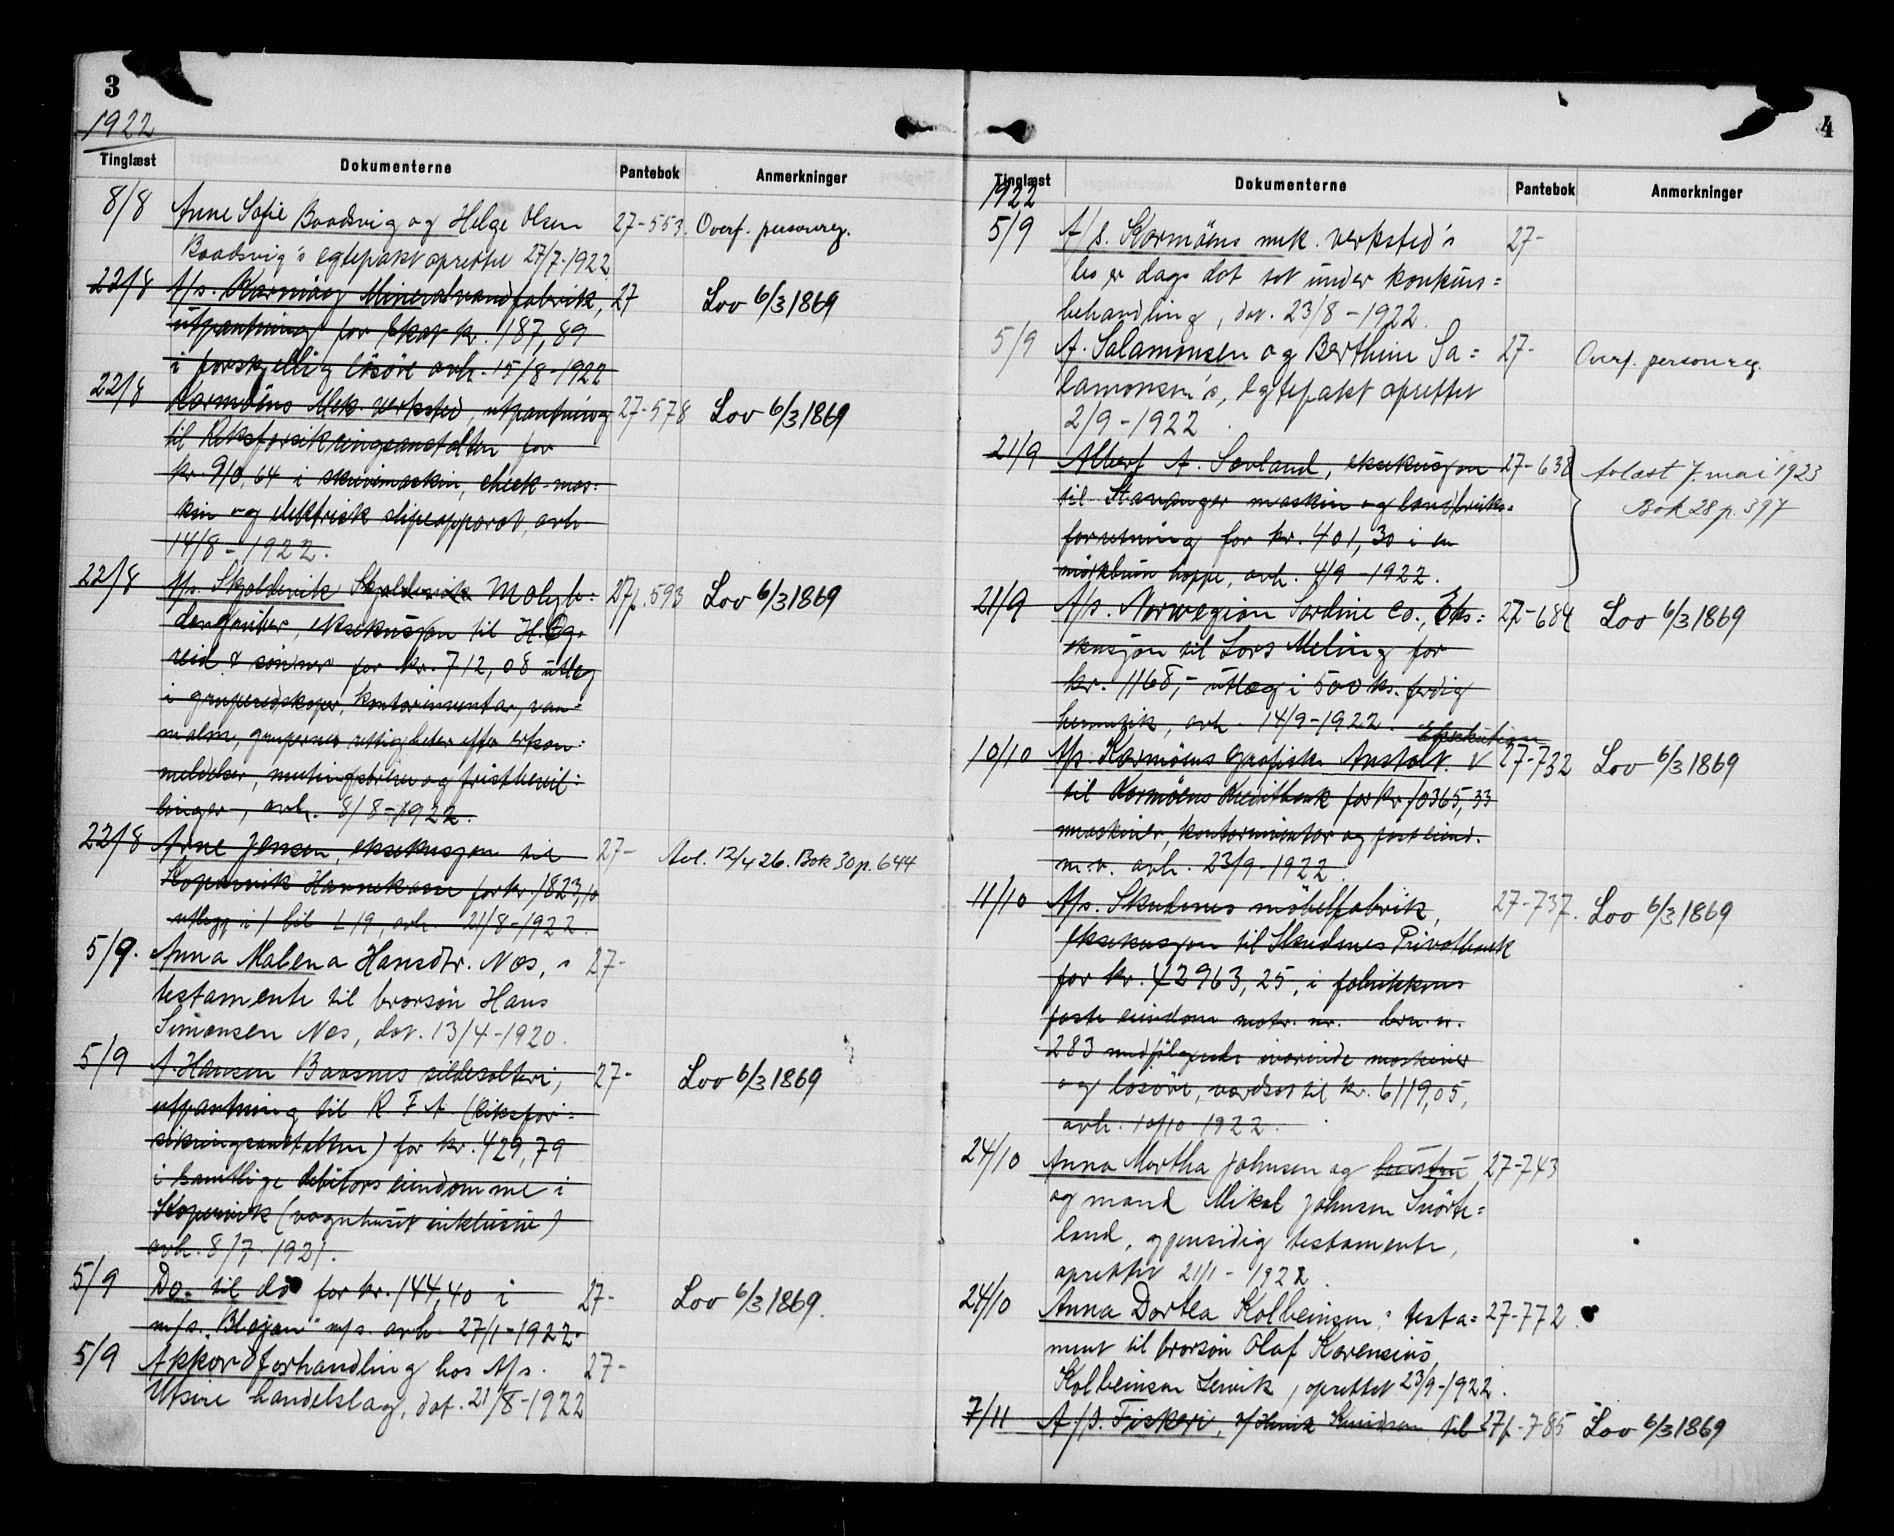 3
1922
Tinglæst Dokumenterne Pantebok Anmerkninger
8/8 Anne Sofie Baadsvig og Helge Olsen 27-553. Overf. personreg.
Baadsvig's egtepakt oprettet 27/7-1922
22/8 A/s. Karmöy Mineralvandfabrik, 27 Lov 6/3 1869
utpantning for skat kr. 187,89
i forskjellig lösöre avh. 15/8-1922
22/8 Karmöens Mek. verksted, utpantning 27-578 Lov 6/3 1869
til Riksforsikringsanstalten for
kr. 910,64 i skrivemaskin, check-mas-
kin og elektrisk slipeapparat, avh
14/8-1922.
22/8 A/s. Skjoldevik Skjoldevik Molyb- 27 p. 593 Lov 6/3 1869
dengruber, eksekusjon til H. Eg-
reid & sönner for kr. 712,08 utleg
i gruperedskaper, kontorinventar, van-
malm, grupernes rettigheter efter
meldelser, mutingsbreve og fristbevil-
linger, avh. 8/8-1922.
22/8 Arne Jensen, eksekusjon til 27- Avl. 12/4 26. Bok 30 p. 644
Kopervik Havnekasse for kr. 1823,10
utlegg i 1 bil L 19, avh. 21/8-1922.
5/9. Anna Malena Hansdtr. Nes, s 27-
testamente til brorsön Hans
Simonsen Nes, dat. 13/4-1920.
5/9 A. Hansen Baasnes sildesalteri, 27- Lov 6/3 1869
utpantning til R F A. (Riksfor-
sikringsanstalten) for kr. 429,79
i samtlige debitors eiendomme i
Kopervik (vognhuset inklusive)
avh. 8/7-1921.
5/9 Do. til do for kr. 144,40 i 27- Lov 6/3 1869.
m/s. "Blaajan" m/s. avh. 27/1-1922.
5/9 Akkordforhandling hos A/s. 27-
Utsire handelslag, dat. 21/8-1922
4
Tinglæst Dokumenterne Pantebok Anmerkninger
1922
5/9 A/s. Karmöens mek. verksted's 27-
bo er dags dat tat under konkurs-
behandling, dat. 23/8-1922.
5/9 A. Salamonsen og Berthine Sa- 27- Overf. personreg.
lamonsen's, egtepakt oprettet
2/9-1922.
21/9 Albert A. Sævland, eksekusjon 27-638 Avlæst 7. mai 1923
til Stavanger maskin og landbruks- Bok 28 p. 397
forretning for kr. 401,30 i en
mörkbrun hoppe, avh. 4/9-1922.
21/9 A/s. Norwegian Sardine Co., Eks- 27-684 Lov 6/3 1869
ekusjon til Lars Meling for
kr. 1168,- utlæg i 500 ks. ferdig
hermetik, avh. 14/9-1922.
Eksekution
10/10 A/s. Karmöens Grafiske Anstalt. V 27-732 Lov 6/3 1869
til Karmöens Kreditbank for kr. 10365,33
maskiner, kontorinventar og fast eiend.
m. v. avh. 23/9-1922.
11/10 A/s. Skudenes möbelfabrik, 27-737. Lov 6/3 1869
eksekusjon til Skudenes Privatbank
for kr. 42963,25, i fabrikkens
faste eiendom matr. nr. brn. nr.
283 medfölgende iværende maskiner
og lösöre, værdsat til kr. 6119,05,
avh. 10/10 1922.
24/10 Anna Martha Johnsen og hustru 27-743
og mand Mikal Johnsen Snörte-
land, gjensidig testamente,
oprettet 21/1-1922.
24/10 Anna Dortea Kolbeinsen, s testa- 27-772.
ment til brorsön Olaf Karensius
Kolbeinsen Leirvik, oprettet 23/9-1922.
7/11 A/s. Fiskeri, v/ Henrik Knudsen til 27 p-785 Lov 6/3 1869